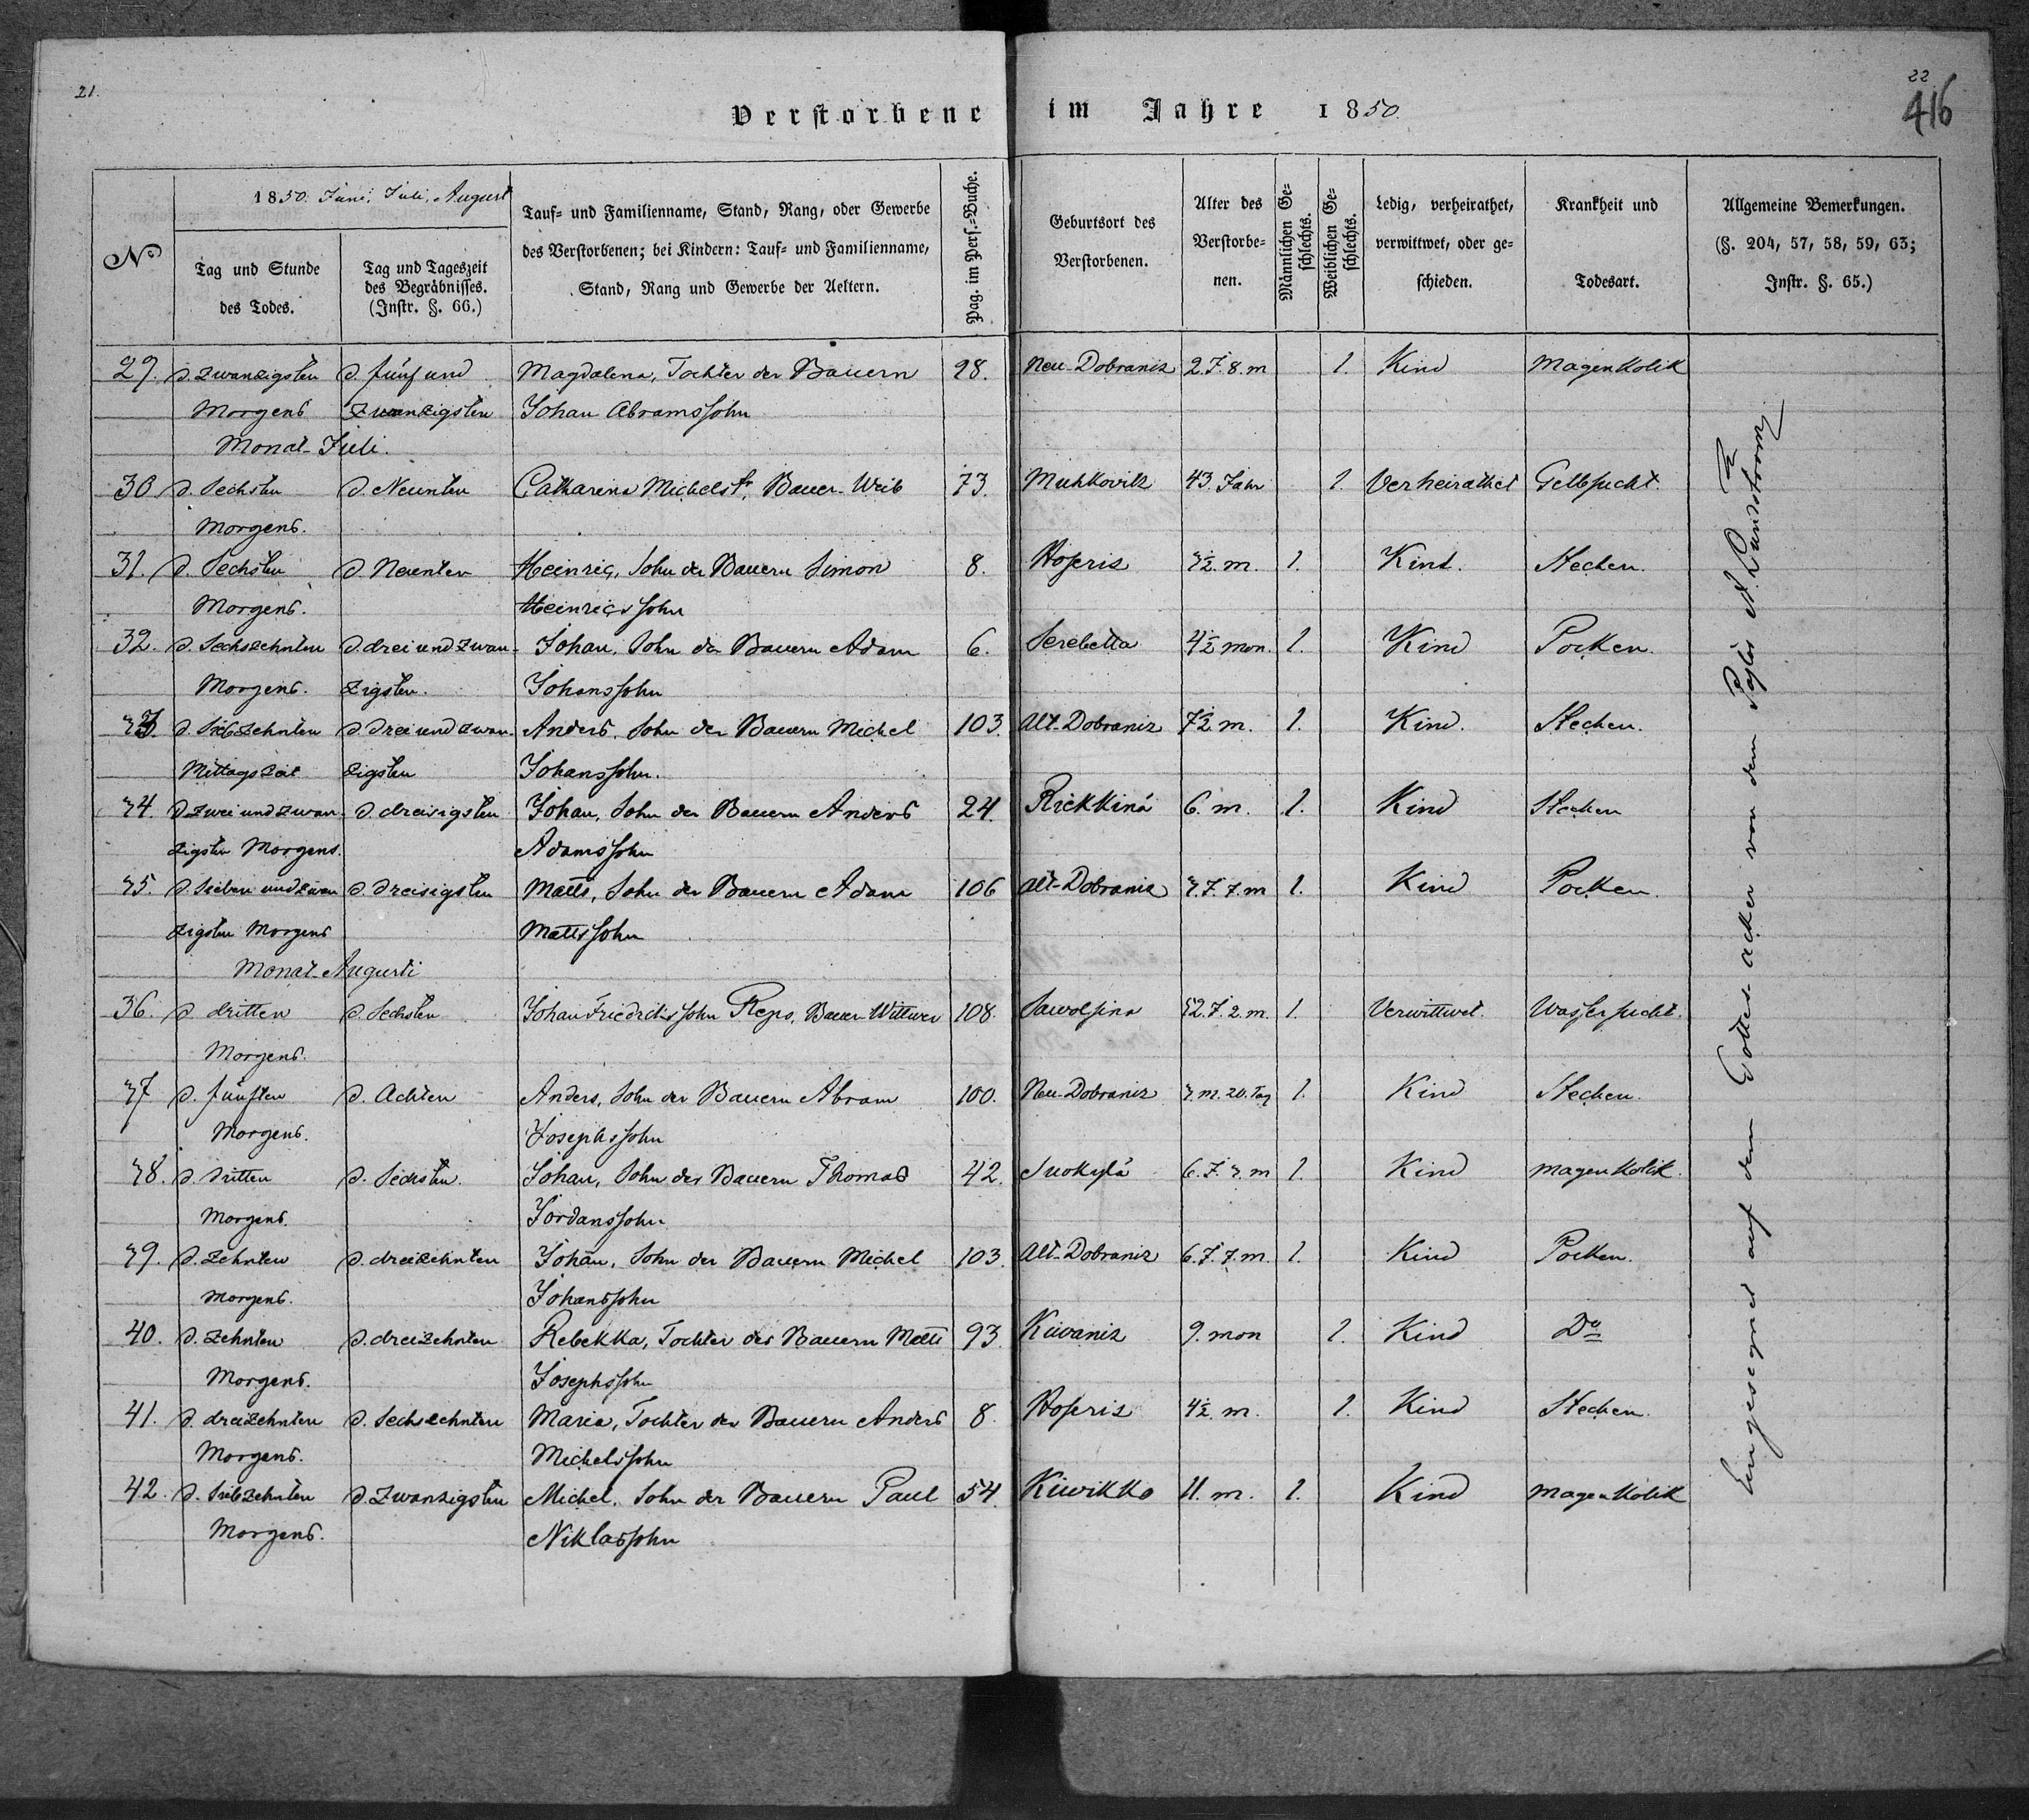 21.
22
416
Verstorbene im Jahre 1850.
1850. Juni, Juli, August
No
Tag und Stunde des Todes.
Tag und Tageszeit des Begräbnisses. (Instr. §. 66.)
Tauf- und Familienname, Stand, Rang, oder Gewerbe des Verstorbenen; bei Kindern: Tauf- und Familienname, Stand, Rang und Gewerbe der Aeltern.
Pag. im Pers.-Buche.
Geburtsort des Verstorbenen.
Alter des Verstorbenen.
Männlichen Geschlechts.
Weiblichen Geschlechts.
Ledig, verheirathet, verwittwet, oder geschieden.
Krankheit und Todesart.
Allgemeine Bemerkungen. (§. 204, 57, 58, 59, 63; Instr. §. 65.)
29. d. zwanzigsten d. fünf und Magdalena, Tochter des Bauern 98. Neu-Dobraniz 2. J. 8. m 1. Kind Magenkolik
Morgens zwanzigsten Johan Abramssohn
Monat Juli.
30 d. Sechsten d. Neunten Catharina Michelst. Bauer-Weib 73. Muhkovitz 43. Jahr 1. Verheirathet Gelbsucht.
Morgens.
31. d. Sechsten d. Neunten Heinric, Sohn des Bauern Simon 8. Hoseris 3½. m. 1. Kind. Stechen.
Morgens. Heinricssohn
32. d. Sechszehnten d. drei und zwan- Johan, Sohn des Bauern Adam 6. Serebetta 4½ mon. 1. Kind Pocken.
Morgens. zigsten. Johanssohn
33. d. Siebzehnten d. drei und zwan- Anders, Sohn des Bauern Michel 103. Alt-Dobraniz 7½. m. 1. Kind. Stechen.
Mittagszeit zigsten Johanssohn.
34. d. zwei und zwan- d. dreisigsten Johan, Sohn des Bauern Anders 24. Rickkinä 6. m. 1. Kind Stechen
zigsten Morgens. Adamssohn
35. d. Sieben und zwan d. Dreisigsten Matts, Sohn des Bauern Adam 106 Alt-Dobraniz 3. J. 7. m 1. Kind Pocken.
zigsten Morgens Mattssohn
Monat Augusti
36. d. dritten d. Sechsten Johan Friedrichssohn Reps, Bauer-Wittwer 108. Sawolsina 52. J. 2. m. 1. Verwittwet. Wassersucht.
Morgens.
37 d. fünften d. Achten Anders, Sohn des Bauern Abram 100. Neu-Dobraniz 3. m. 20. Tag 1. Kind Stechen.
Morgens. Josephssohn
38. d. dritten d. Sechsten. Johan, Sohn des Bauern Thomas 42. Suokylä 6. J. 3. m 1. Kind Magenkolik.
Morgens. Jordanssohn
39. d. Zehnten d. dreizehnten Johan, Sohn des Bauern Michel 103. Alt-Dobraniz 6. J. 7. m. 1. Kind Pocken.
Morgens. Johanssohn
40. d. Zehnten d. dreizehnten Rebekka, Tochter des Bauern Matts 93. Kiivaniz 9. mon 1. Kind Do
Morgens. Josephssohn
41. d. dreizehnten d. Sechszehnten Maria, Tochter des Bauern Anders 8. Hoseris 4½. m. 1. Kind Stechen.
Morgens. Michelssohn
42. d. Siebzehnten d. Zwanzigsten Michel, Sohn des Bauern Paul 54. Kiwikko 11. m. 1. Kind Magenkolik
Morgens. Niklassohn
Eingesegnet auf dem Gottes-acker von dem Pastor A. Lundbom